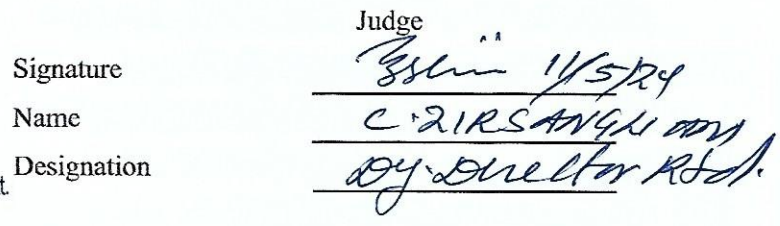 Judge
Signature 11/5/24
Name C. ZIRSANGLIANA
Designation Dy. Director Rtd.
t.